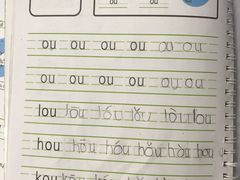 ou ou
ou ou ou ou ou ou
ou ou ou ou ou ou
lou lōu lóu lǒu lòu lou
hou hōu hóu hǒu hòu hou
kou kōu